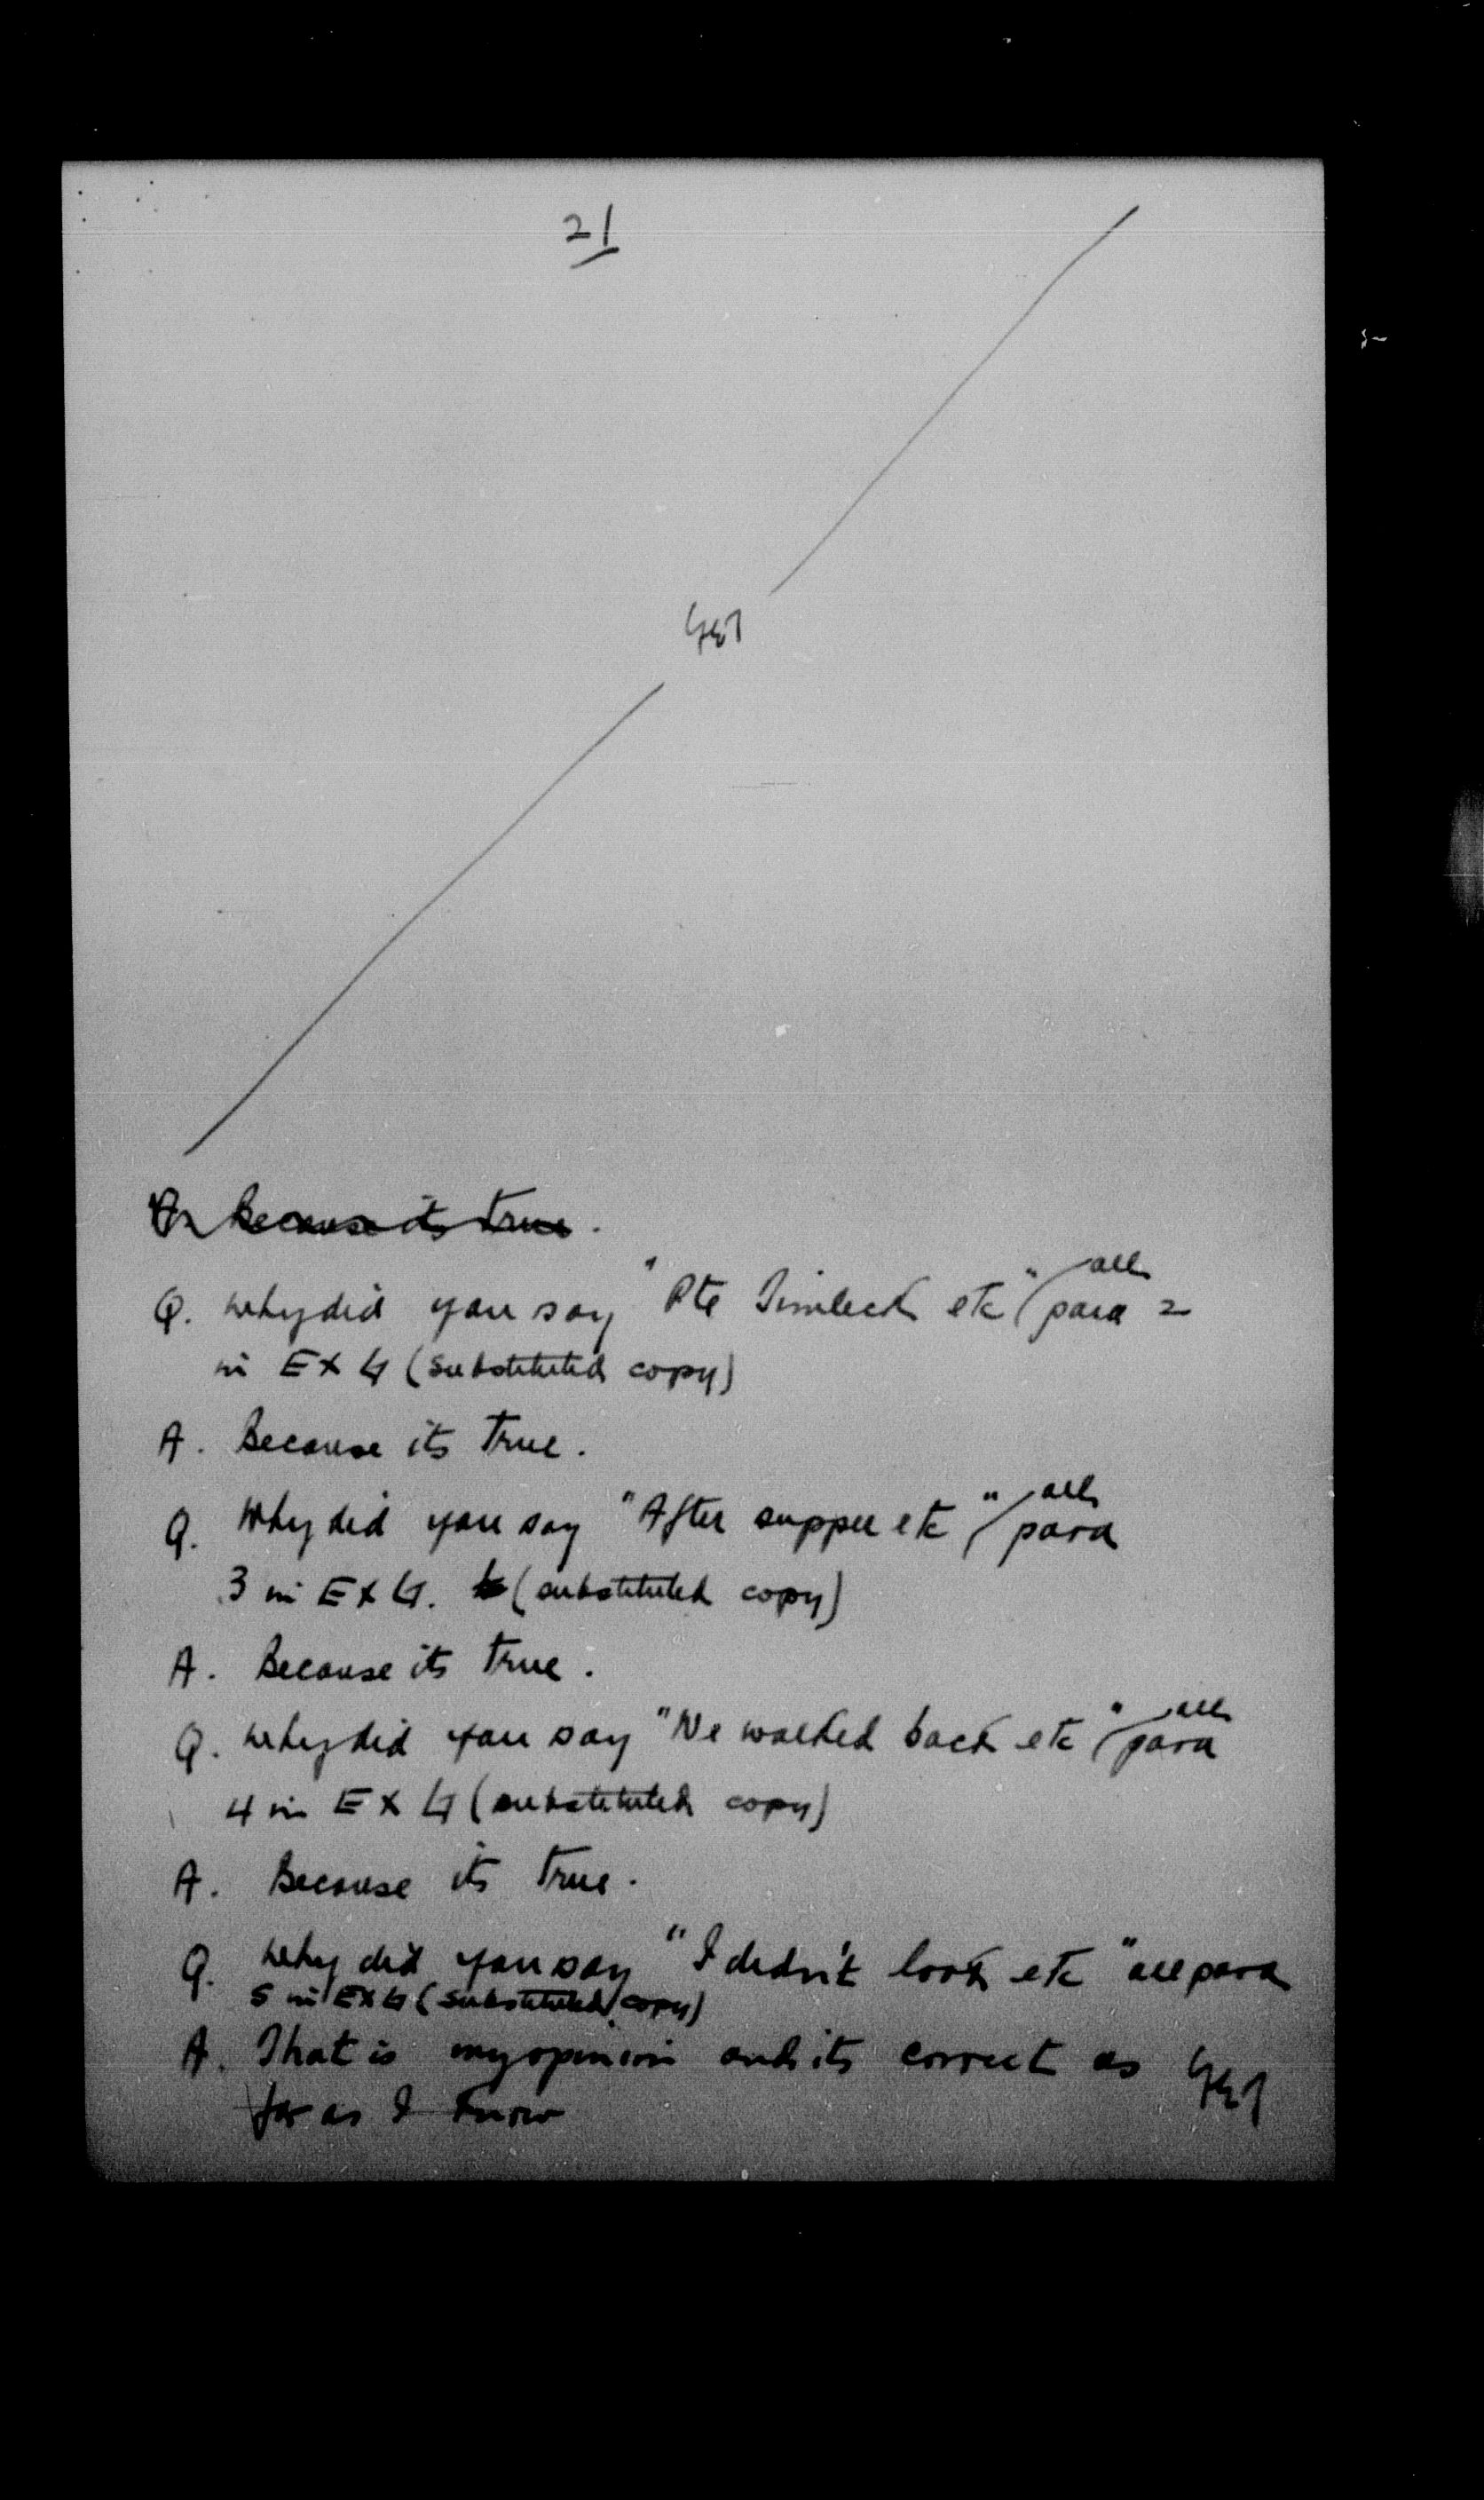 21
A. Because its true.
Q. Why did you say "Pte etc" all para 2
in Ex G (substituted copy)
A. Because its true.
Q. Why did you say "After supper etc" all para
3 in Ex G. (substituted copy)
A. Because its true.
Q. Why did you say "We walked back etc" all para
4 in Ex G (substituted copy)
A. Because its true.
Q. Why did you say "I didn't look etc" all para
5 in Ex G (substituted copy)
A. That is my opinion and its correct as
far as I know